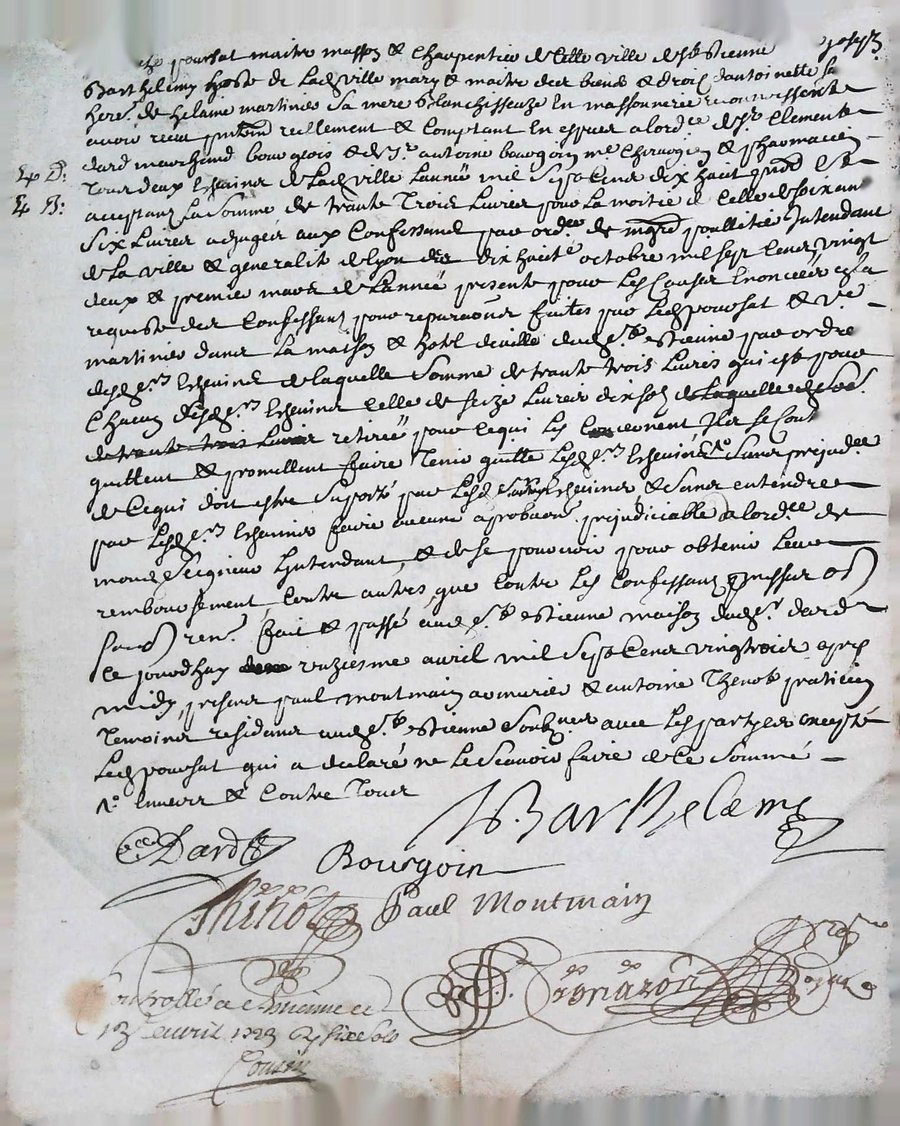 poursat maitre masson & Charpentier de cette ville de st estienne joseph
Barthelemy hoste de ladt ville mary & maitre des biens & droits dantoinette sa
here. de helaine martinier sa mere blanchisseuze En massonnerie reconnoissent
avoir receu reellement & Comptant En especes a lordce de sr Clement
dard marchand bourgeois & de sr antoine bourgoin me Chirurgien & pharmacien
Tous deux Eschevins de ladt ville Lannée mil Sept Cens dix huit &
acceptans La somme de trante Trois Livres pour La moitié de Celle de soixan
Six Livres adjugée aux Confessans par ordce de mgr poulletier Intendant
de La ville & generalité de lyon des dix huite octobre mil sept Cens vingt
deux & premier mars de Lannée presente pour Les Causes Enoncées Es la
requeste des Confessans pour reparaons faites par ledt poursat & ve
martinier dans La maison & hotel de ville dudt st estienne par ordre
desdt srs Eschevins de laquelle Somme de trante trois Livres qui est pour
Chacun desdt srs Eschevins Celle de seize Livres dix sols de laquelle de soe.
de trante trois Livres retirée pour Cequi Les Concernent Ils se Cont
quittent & promettent faire Tenir quitte Lesdt srs Eschevins Sans prejudce
de Cequi doit estre Suporté par Lesdt Eschevins & sans entendre
par Lesdt srs Eschevins faire aucune aprobaon prejudiciable a lordce de
monseigneur Lintendant, & de se pourvoir pour obtenir Leur
remboursement Contre autres que Contre Les Confessans
ren. fait & passé audt st estienne maison dudt sr dard
Ce jourdhuy unziesme avril mil Sept Cens vingtrois apres
midy, presens paul montmain armurier & antoine Thenot praticien
Temoins residans audt st estienne Soubznes avec Les partyes excepté
Ledt poursat qui a declaré ne Le scavoir faire de Ce sommé
Envers & Contre Tous
Barthelemy
Dard
Bourgoin
Thenot
Paul Montmain
Controllé a st Etienne ce
13e avril 1723 Rx six sols
Cousin